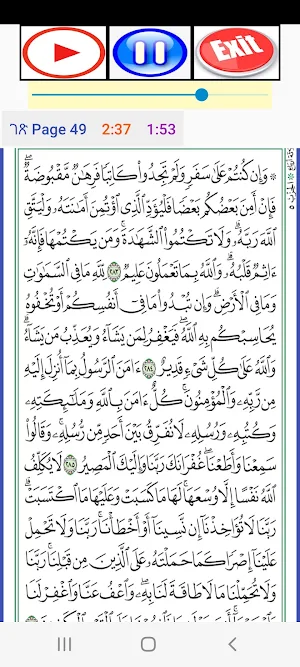 Exit
ገጽ Page 49 2:37 1:53
۞ وَإِن كُنتُمْ عَلَىٰ سَفَرٍ وَلَمْ تَجِدُوا۟ كَاتِبًا فَرِهَـٰنٌ مَّقْبُوضَةٌ ۖ
فَإِنْ أَمِنَ بَعْضُكُم بَعْضًا فَلْيُؤَدِّ ٱلَّذِى ٱؤْتُمِنَ أَمَـٰنَتَهُۥ وَلْيَتَّقِ
ٱللَّهَ رَبَّهُۥ ۗ وَلَا تَكْتُمُوا۟ ٱلشَّهَـٰدَةَ ۚ وَمَن يَكْتُمْهَا فَإِنَّهُۥٓ
ءَاثِمٌ قَلْبُهُۥ ۗ وَٱللَّهُ بِمَا تَعْمَلُونَ عَلِيمٌ ٢٨٣ لِّلَّهِ مَا فِى ٱلسَّمَـٰوَٰتِ
وَمَا فِى ٱلْأَرْضِ ۗ وَإِن تُبْدُوا۟ مَا فِىٓ أَنفُسِكُمْ أَوْ تُخْفُوهُ
يُحَاسِبْكُم بِهِ ٱللَّهُ ۖ فَيَغْفِرُ لِمَن يَشَآءُ وَيُعَذِّبُ مَن يَشَآءُ ۗ
وَٱللَّهُ عَلَىٰ كُلِّ شَىْءٍ قَدِيرٌ ٢٨٤ ءَامَنَ ٱلرَّسُولُ بِمَآ أُنزِلَ إِلَيْهِ
مِن رَّبِّهِۦ وَٱلْمُؤْمِنُونَ ۚ كُلٌّ ءَامَنَ بِٱللَّهِ وَمَلَـٰٓئِكَتِهِۦ
وَكُتُبِهِۦ وَرُسُلِهِۦ لَا نُفَرِّقُ بَيْنَ أَحَدٍ مِّن رُّسُلِهِۦ ۚ وَقَالُوا۟
سَمِعْنَا وَأَطَعْنَا ۖ غُفْرَانَكَ رَبَّنَا وَإِلَيْكَ ٱلْمَصِيرُ ٢٨٥ لَا يُكَلِّفُ
ٱللَّهُ نَفْسًا إِلَّا وُسْعَهَا ۚ لَهَا مَا كَسَبَتْ وَعَلَيْهَا مَا ٱكْتَسَبَتْ ۗ
رَبَّنَا لَا تُؤَاخِذْنَآ إِن نَّسِينَآ أَوْ أَخْطَأْنَا ۚ رَبَّنَا وَلَا تَحْمِلْ
عَلَيْنَآ إِصْرًا كَمَا حَمَلْتَهُۥ عَلَى ٱلَّذِينَ مِن قَبْلِنَا ۚ رَبَّنَا
وَلَا تُحَمِّلْنَا مَا لَا طَاقَةَ لَنَا بِهِۦ ۖ وَٱعْفُ عَنَّا وَٱغْفِرْ لَنَا